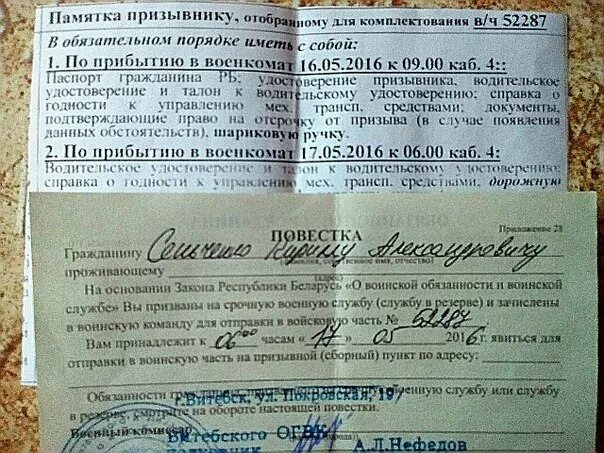 Памятка призывнику, отобранному для комплектования в/ч 52287
В обязательном порядке иметь с собой:
1. По прибытию в военкомат 16.05.2016 к 09.00 каб. 4::
Паспорт гражданина РБ; удостоверение призывника, водительское
удостоверение и талон к водительскому удостоверению; справка о
годности к управлению мех. трансп. средствами; документы,
подтверждающие право на отсрочку от призыва (в случае появления
данных обстоятельств), шариковую ручку.
2. По прибытию в военкомат 17.05.2016 к 06.00 каб. 4:
Водительское удостоверение и талон к водительскому удостоверению;
справка о годности к управлению мех. трансп. средствами; дорожную
Приложение 28
ПОВЕСТКА
Гражданину Сенченко Кириллу Александровичу
(фамилия, собственное имя, отчество)
проживающему
(адрес)
На основании Закона Республики Беларусь «О воинской обязанности и воинской
службе» Вы призваны на срочную военную службу (службу в резерве) и зачислены
в воинскую команду для отправки в войсковую часть № 52287
Вам принадлежит к 06 00 часам «17» 05 2016г. явиться для
отправки в воинскую часть на призывной (сборный) пункт по адресу:
г. Витебск, ул. Покровская, 19
Обязанности военную службу или службу
в резерве, смотрите на обороте настоящей повестки.
Военный комиссар
Витебского ОГВК
полковник А.Л.Нефедов